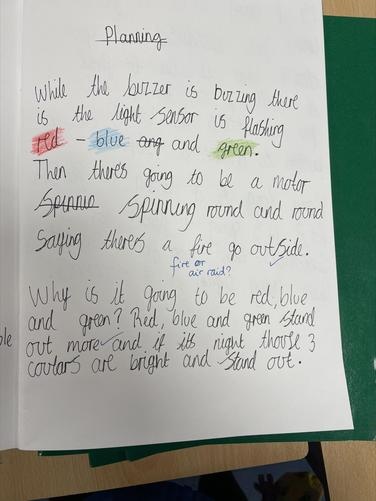 Planning
While the buzzer is buzzing there
is the light sensor is flashing
red - blue ang and green.
Then there's going to be a motor
Spinnin Spinning round and round
Saying there's a fire go outside.
fire or
air raid?
Why is it going to be red, blue
and green? Red, blue and green stand
out more and if its night thouse 3
coulars are bright and stand out.